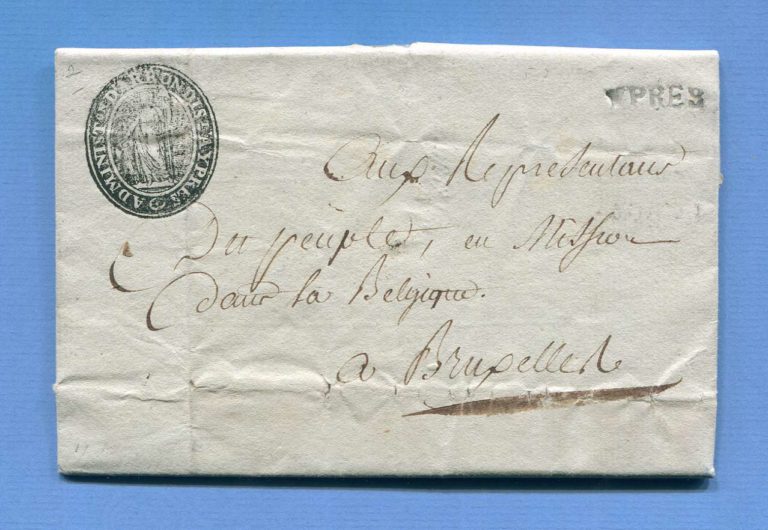 ADMINIST. D'ARRONDISS. D'YPRES
YPRES
Aux Representans
Du peuple, en Mission
dans la Belgique.
a Bruxelles